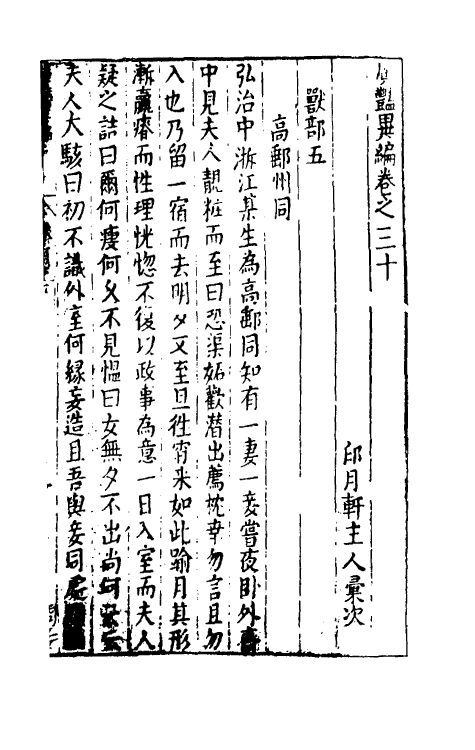 廣艷異編卷之三十
印月軒主人彙次
獸部五
高郵州同
弘治中浙江某生為高郵同知有一妻一妾嘗夜卧外齋
中見夫人靚粧而至曰恐渠妬歡潜出薦枕幸勿言且勿
入也乃留一宿而去明夕又至旦徃宵来如此踰月其形
漸羸瘠而性理恍惚不復以政事為意一日入室而夫人
疑之詰曰爾何瘦何久不見慍曰女無夕不出尚何
夫人大駭曰初不識外室何緣妄造且吾與妾同處